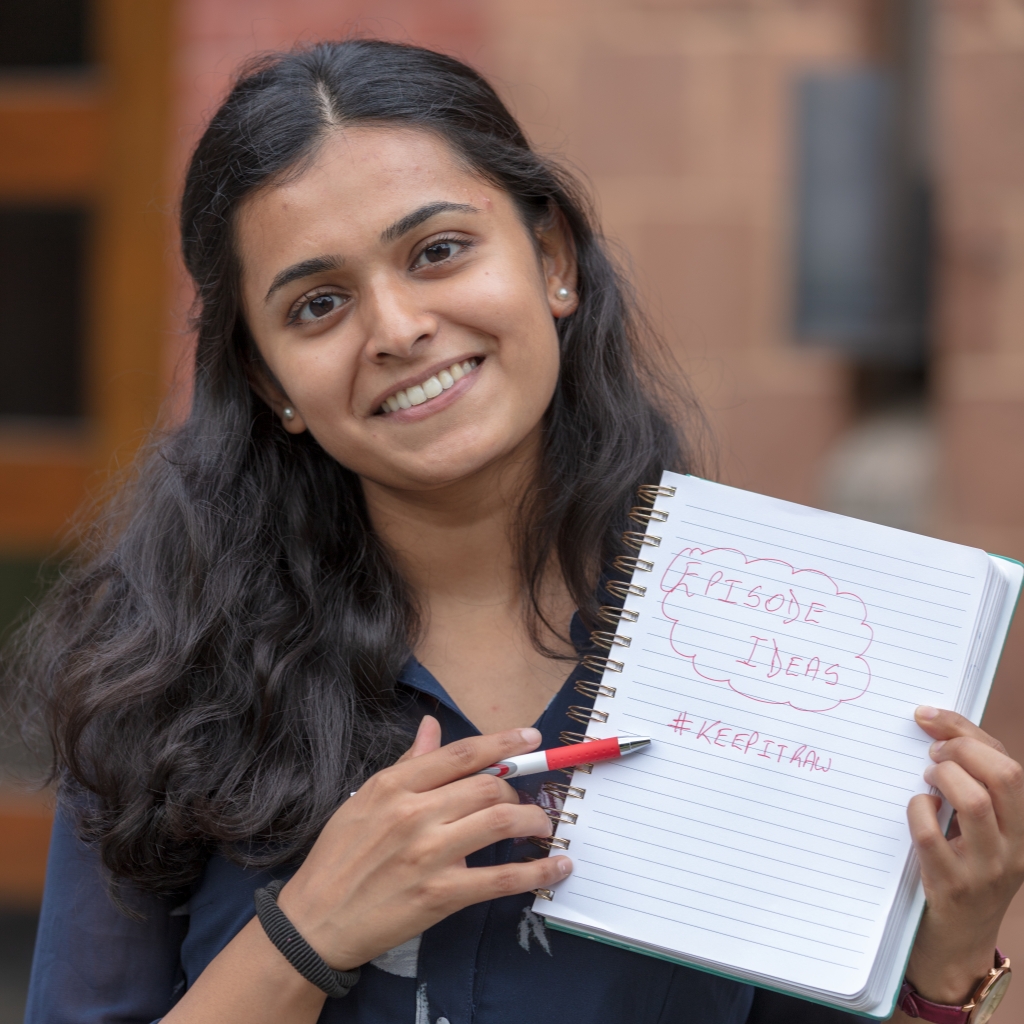 EPISODE
IDEAS
#KEEPITRAW